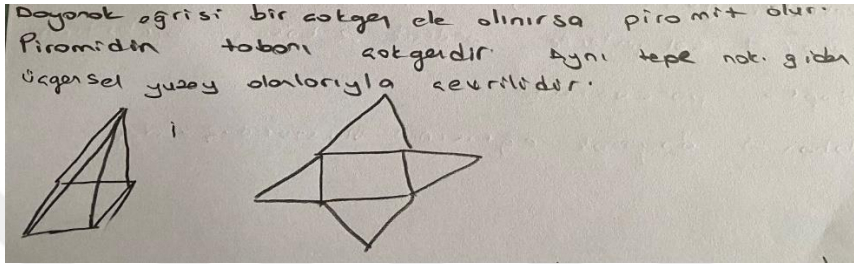 Dayanak eğrisi bir çokgen ele alınırsa piramit olur.
Piramidin tabanı çokgendir. Aynı tepe nok. giden
üçgensel yüzey alanlarıyla çevrilidir.